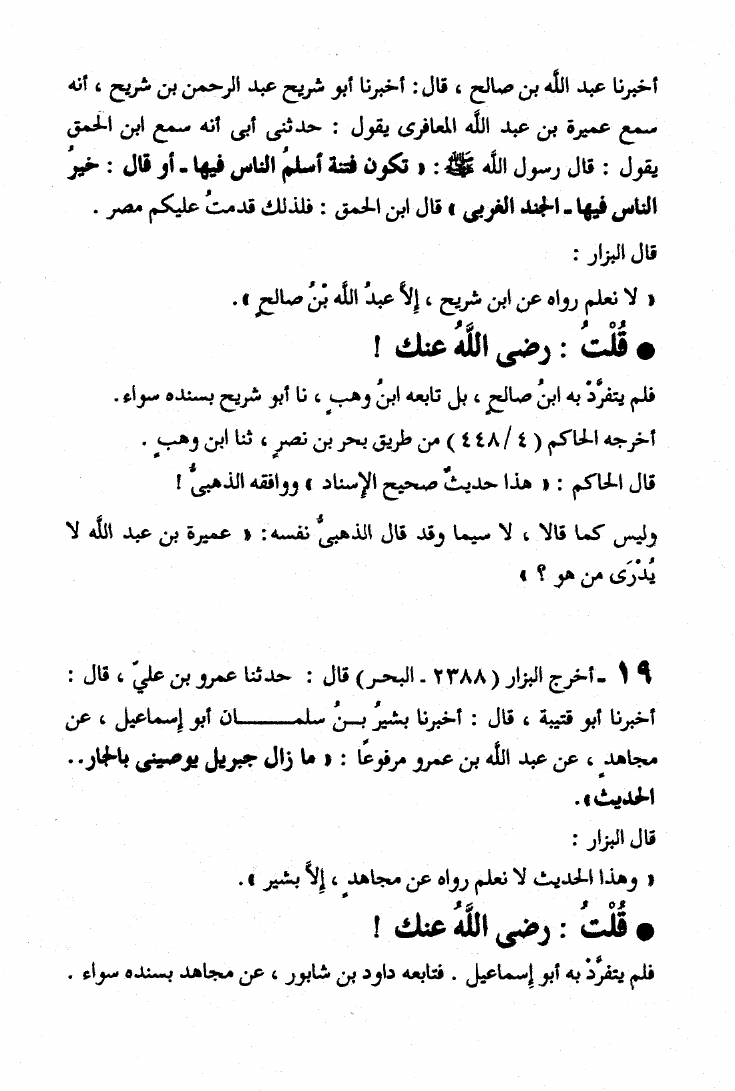 أخبرنا عبد اللَّه بن صالح ، قال : أخبرنا أبو شريح عبد الرحمن بن شريح ، أنه
سمع عميرة بن عبد اللَّه المعافرى يقول : حدثنى أبى أنه سمع ابن الحمق
يقول : قال رسول اللَّه ﷺ : « تكون فتنة أسلمُ الناس فيها ـ أو قال : خيرُ
الناس فيها ـ الجند الغربى » قال ابن الحمق : فلذلك قدمتُ عليكم مصر .
قال البزار :
« لا نعلم رواه عن ابن شريح ، إلاَّ عبدُ اللَّه بْنُ صالحٍ » .
● قُلْتُ : رضى اللَّهُ عنك !
فلم يتفرَّدْ به ابنُ صالحٍ ، بل تابعه ابنُ وهبٍ ، نا أبو شريح بسنده سواء .
أخرجه الحاكم ( ٤ / ٤٤٨ ) من طريق بحر بن نصرٍ ، ثنا ابن وهبٍ .
قال الحاكم : « هذا حديثٌ صحيح الإسناد » ووافقه الذهبىُّ !
وليس كما قالا ، لا سيما وقد قال الذهبىُّ نفسه : « عميرة بن عبد اللَّه لا
يُدْرَى من هو ؟ »
١٩ ـ أخرج البزار ( ٢٣٨٨ ـ البحر ) قال : حدثنا عمرو بن عليّ ، قال :
أخبرنا أبو قتيبة ، قال : أخبرنا بشيرُ بــنُ سلمــــــان أبو إسماعيل ، عن
مجاهدٍ ، عن عبد اللَّه بن عمرو مرفوعًا : « ما زال جبريل يوصينى بالجار . .
الحديث » .
قال البزار :
« وهذا الحديث لا نعلم رواه عن مجاهدٍ ، إلاَّ بشير » .
● قُلْتُ : رضى اللَّهُ عنك !
فلم يتفرَّدْ به أبو إسماعيل . فتابعه داود بن شابور ، عن مجاهد بسنده سواء .